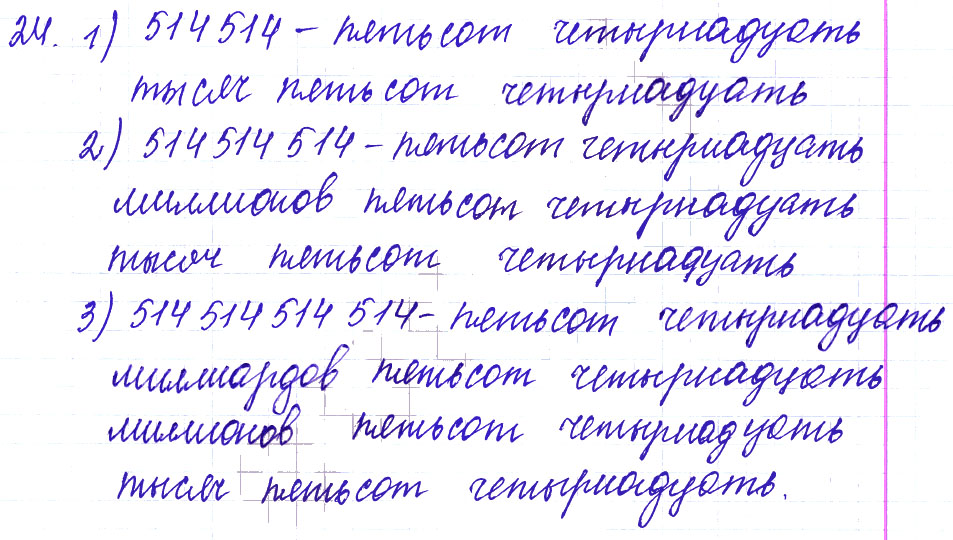 24. 1) 514 514 – пятьсот четырнадцать
тысяч пятьсот четырнадцать
2) 514 514 514 – пятьсот четырнадцать
миллионов пятьсот четырнадцать
тысяч пятьсот четырнадцать
3) 514 514 514 514 – пятьсот четырнадцать
миллиардов пятьсот четырнадцать
миллионов пятьсот четырнадцать
тысяч пятьсот четырнадцать.